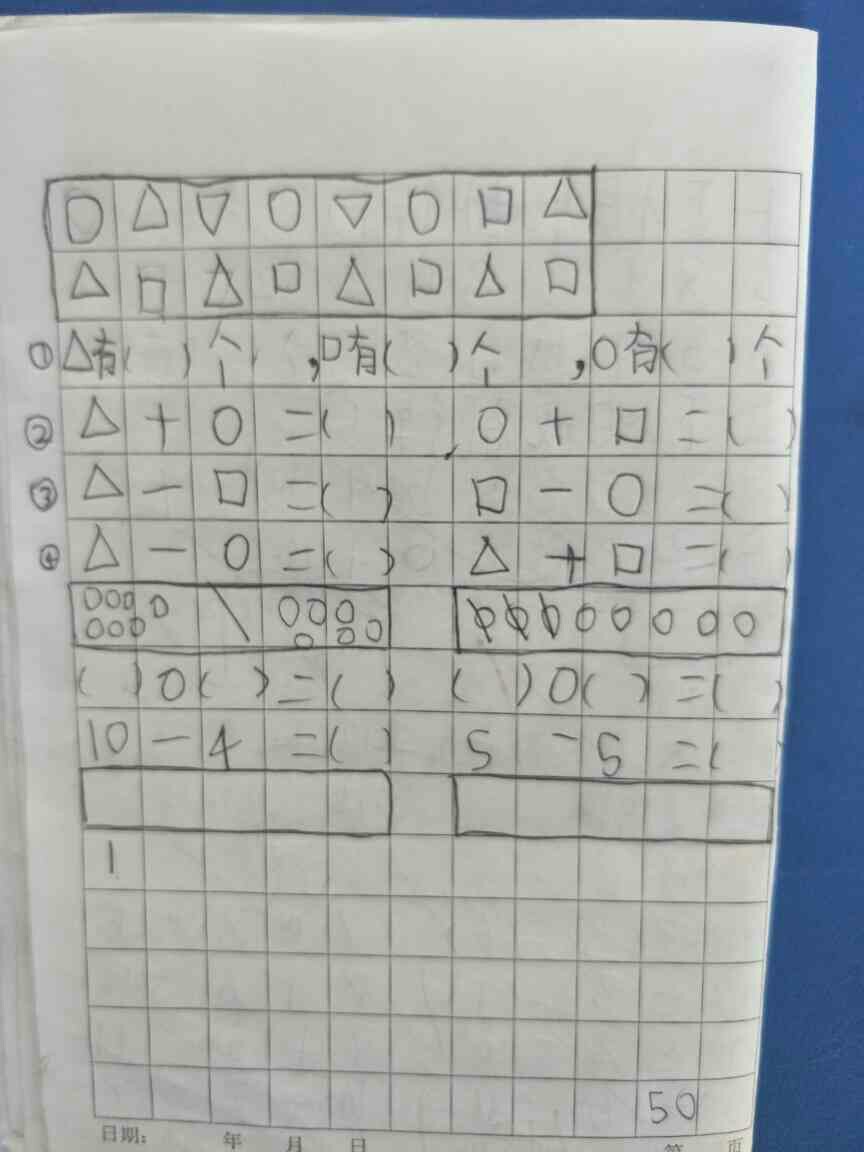 ① △有( )个,□有( )个,○有( )个
② △+○=( ) ○+□=( )
③ △-□=( ) □-○=( )
④ △-○=( ) △+□=( )
( )○( )=( ) ( )○( )=( )
10-4=( ) 5-5=(
1
50
日期: 年 月 日 第 页